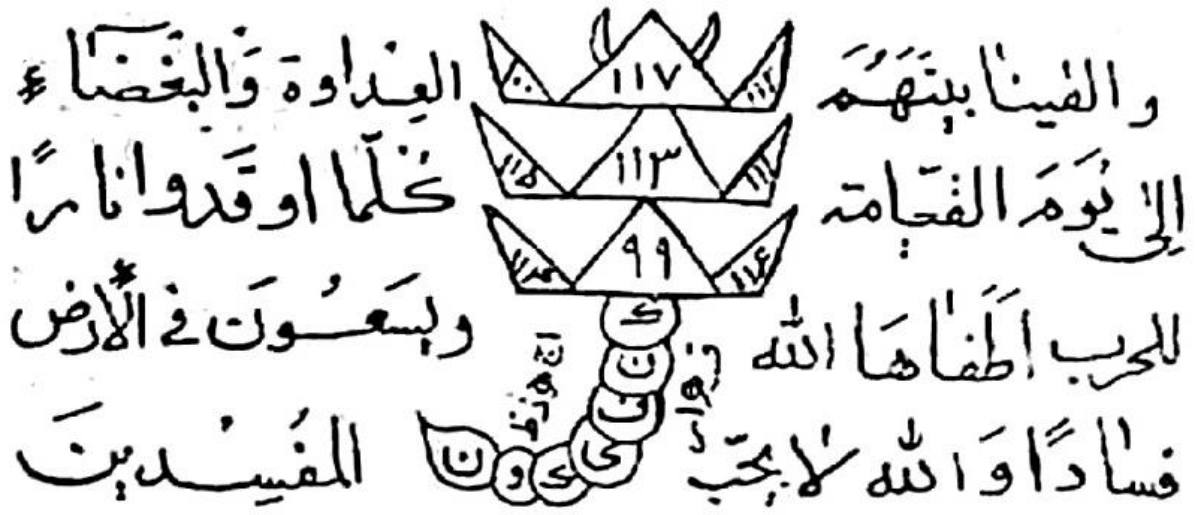 والقينا بينهم العداوة والبغضاء
الى يوم القيامة كلما اوقدوا نارا
للحرب اطفاها الله ويسعون في الارض
فسادا والله لا يحب المفسدين
١١٧
١١٣
٩٩
١١٤
ك
ن
ف
ى
ك
و
ن